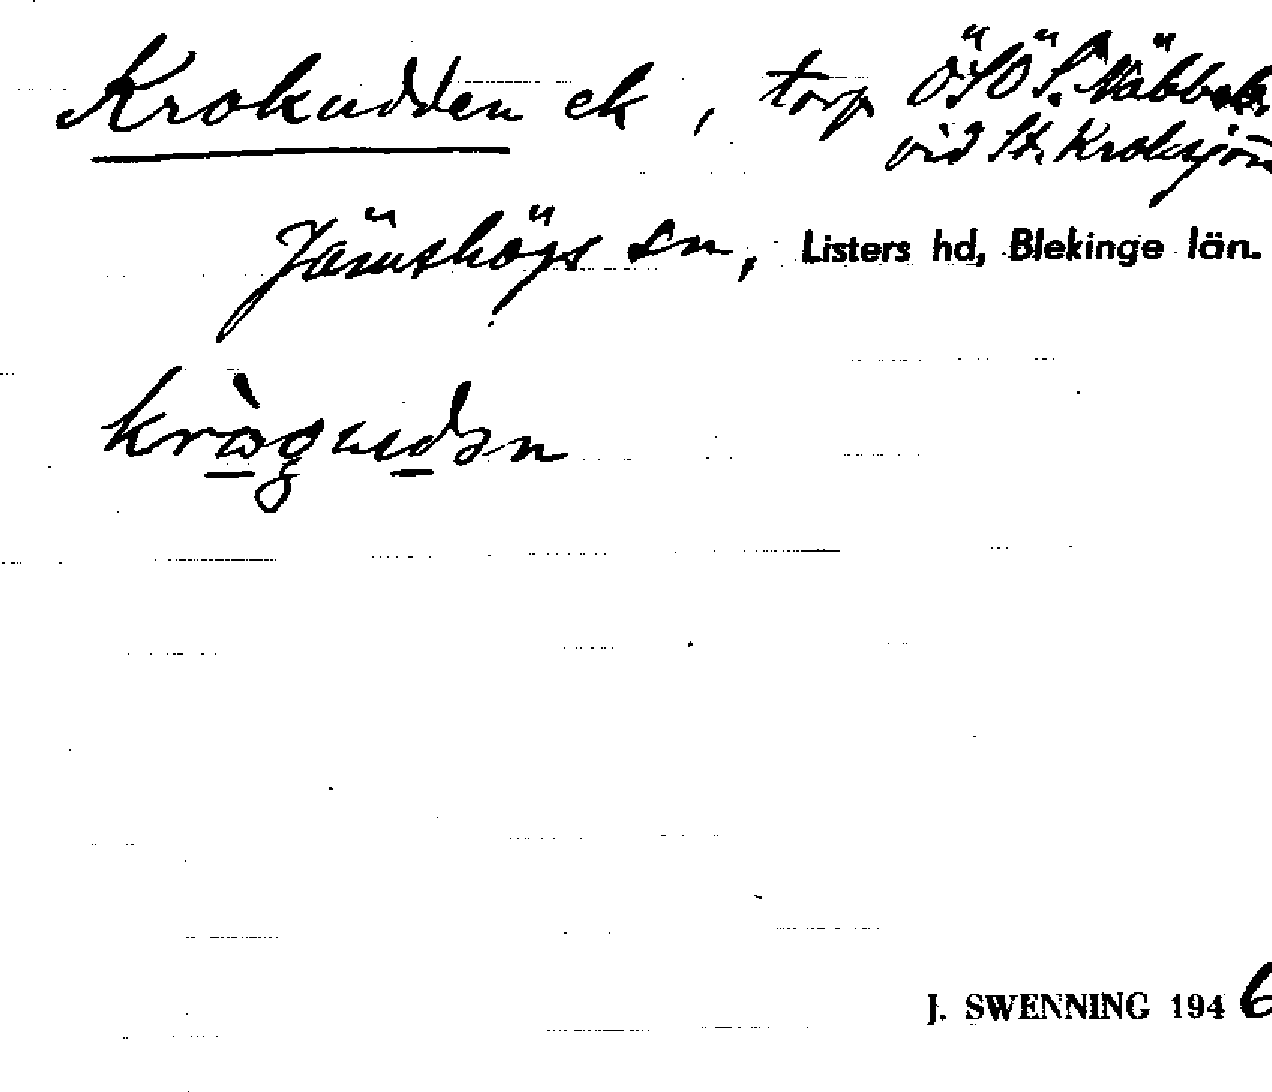 Krokudden ek, torp ÖSÖ S. Näbbeb.
vid St. Kroksjön
Jämshögs sn, Listers hd, Blekinge län.
J. SWENNING 1946